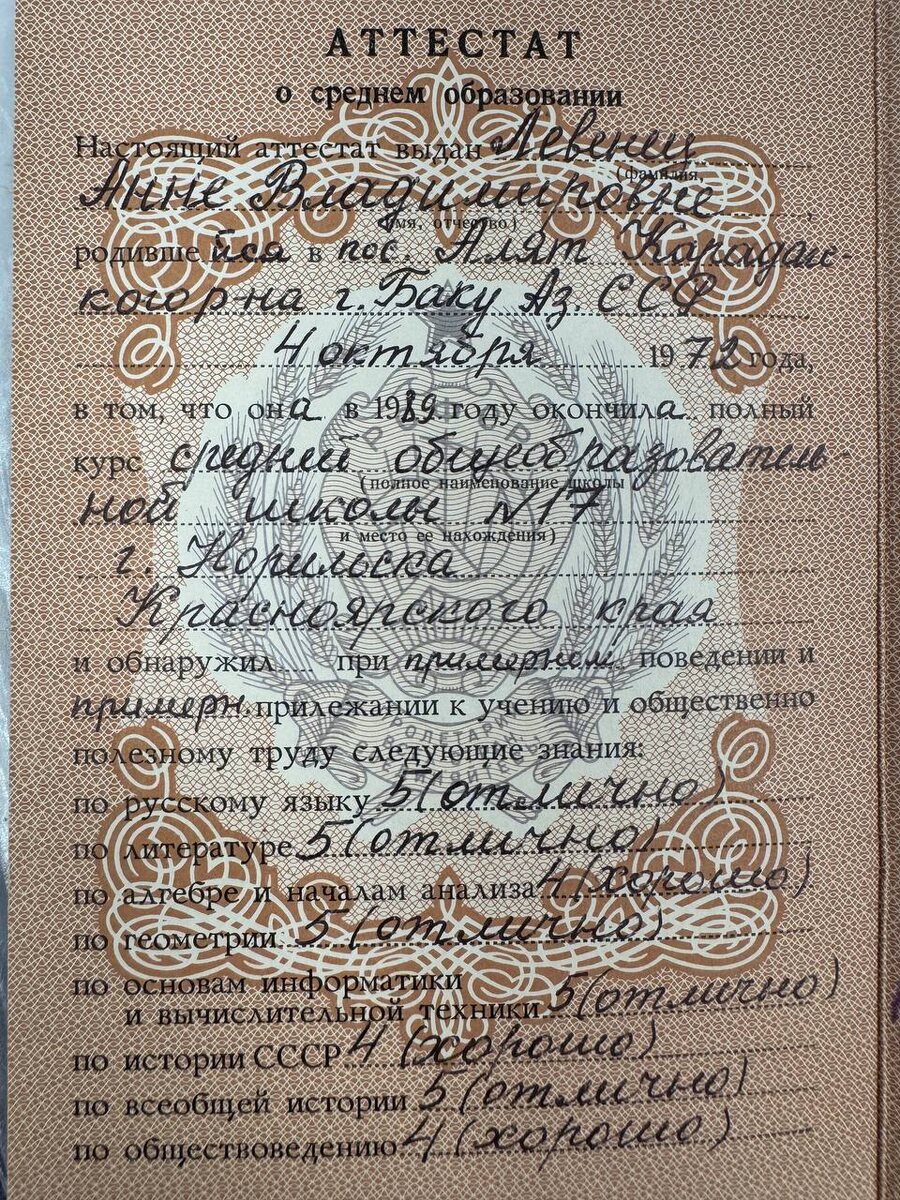 АТТЕСТАТ
о среднем образовании
Настоящий аттестат выдан Левенец
(фамилия,
Анне Владимировне
имя, отчество)
родившейся в пос. Алят Карадаг-
ского р-на г. Баку Аз. ССР
4 октября 1972 года,
в том, что она в 1989 году окончила полный
курс средней общеобразователь-
(полное наименование школы
ной школы N 17
и место ее нахождения)
г. Норильска
Красноярского края
и обнаружил при примерном поведении и
примерн. прилежании к учению и общественно
полезному труду следующие знания:
по русскому языку 5 (отлично)
по литературе 5 (отлично)
по алгебре и началам анализа 4 (хорошо)
по геометрии 5 (отлично)
по основам информатики
и вычислительной техники 5 (отлично)
по истории СССР 4 (хорошо)
по всеобщей истории 5 (отлично)
по обществоведению 4 (хорошо)